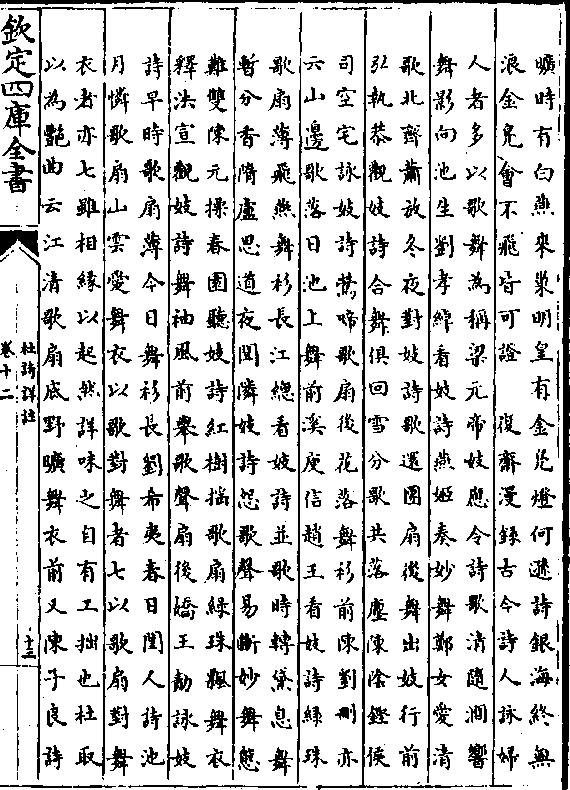 曠時有白燕來巢明皇有金鳬燈何遜詩銀海終無
浪金鳬會不飛皆可證　復齋漫録古今詩人詠婦
人者多以歌舞為稱梁元帝妓應令詩歌清隨澗響
舞影向池生劉孝綽看妓詩燕姬奏妙舞鄭女愛清
歌北齊蕭放冬夜對妓詩歌還團扇後舞出妓行前
弘執恭觀妓詩合舞俱回雪分歌共落塵陳陰鏗侯
司空宅詠妓詩鶯啼歌扇後花落舞衫前陳劉刪亦
云山邊歌落日池上舞前溪庾信趙王看妓詩緑珠
歌扇薄飛燕舞衫長江總看妓詩並歌時轉黛息舞
暫分香隋盧思道夜聞隣妓詩怨歌聲易斷妙舞態
難雙陳元操春園聽妓詩紅樹揺歌扇緑珠飄舞衣
釋法宣觀妓詩舞袖風前舉歌聲扇後嬌王勣詠妓
詩早時歌扇薄今日舞衫長劉希夷春日閨人詩池
月憐歌扇山雲愛舞衣以歌對舞者七以歌扇對舞
衣者亦七雖相縁以起然詳味之自有工拙也杜取
以為艶曲云江清歌扇底野曠舞衣前又陳子良詩
欽定四庫全書
杜詩詳註
卷十二
十三